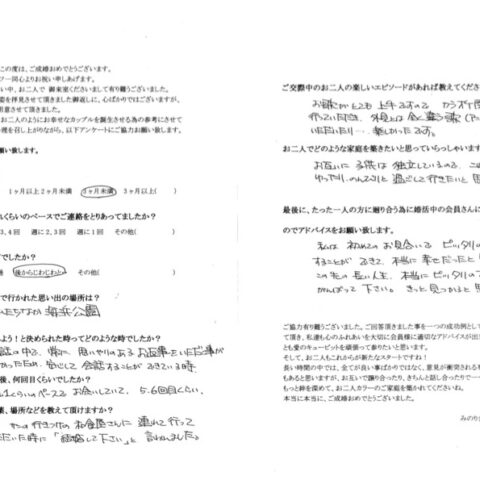 この度は、ご成婚おめでとうございます。
フ一同心よりお祝い申し上げます。
い中、お二人で 御来室くださいまして有り難うございました。
姿を拝見させて頂きました御返しに、心ばかりではございますが、
用意させて頂きました。
お二人のようにお幸せなカップルを誕生させる為の参考にさせて
理を召し上がりながら、以下アンケートにご協力お願い致します。
致します。
1ヶ月以上2ヶ月未満 3ヶ月未満 3ヶ月以上( )
れくらいのペースでご連絡をとりあってましたか?
3,4回 週に2,3回 週に1回 その他( )
でしたか?
後からじわじわと その他( )
で行かれた思い出の場所は?
ひたちなか 海浜公園
よう!と決められた時ってどのような時でしたか?
話の中で、常に 思いやりのある お返事をいただく事が
安心して 会話することができている時
後、何回目くらいでしたか?
1くらいのペースで お会いしていて、5.6回目くらい
葉、場所などを教えて頂けますか?
行きつけの お店に 連れて行って
だいた時に「結婚して下さい」と 言われました。
ご交際中のお二人の楽しいエピソードがあれば教えてください
お歌がとても 上手 なので カラオケ
行っていただき、外見とは 全く違う歌
いただいたり… 楽しかったです。
お二人でどのような家庭を築きたいと思っていらっしゃいます
お互いに 子供は 独立しているので、
ゆったり、のんびりと 過ごして行きたいと
最後に、たった一人の方に廻り合う為に婚活中の会員さんに
のでアドバイスをお願い致します。
私は 初めてのお見合いで ピッタリ
することができて、本当に 幸せだったと
この先の長い人生、本当に ピッタリの
がんばって 下さい。きっと見つかると
ご協力有り難うございました。ご回答頂きました事を一つの成功例として
て頂き、私達も心のふれあいを大切に会員様に適切なアドバイスが出
とも愛のキューピットを頑張って参りたいと思います。
そして、お二人もこれからが新たなスタートですね!
長い時間の中では、全てが良い事ばかりではなく、意見が衝突される
もあると思いますが、お互いで譲り合ったり、きちんと話し合ったりで
もっと絆を深めて、お二人カラーのご家庭を築かれてくださいね。
本当に本当に、ご成婚おめでとうございました。
みのり